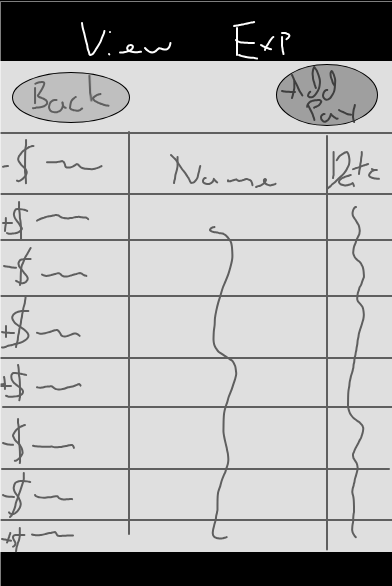 View Exp
Back
Add
Pay
-$ Name
+$
-$
+$
+$
-$
-$
+$